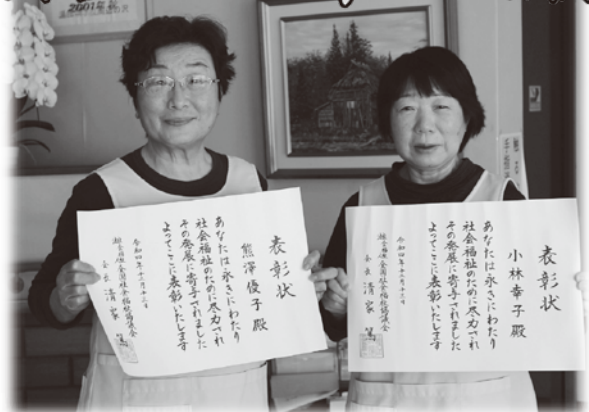 2001年
表彰状
熊澤優子殿
あなたは永きにわたり
社会福祉のために尽力され
その発展に寄与されました
よってここに表彰いたします
令和四年十二月十三日
社会福祉協議会
会長 清家 篤
表彰状
小林幸子殿
あなたは永きにわたり
社会福祉のために尽力され
その発展に寄与されました
よってここに表彰いたします
令和四年十二月十三日
社会福祉協議会
会長 清家 篤